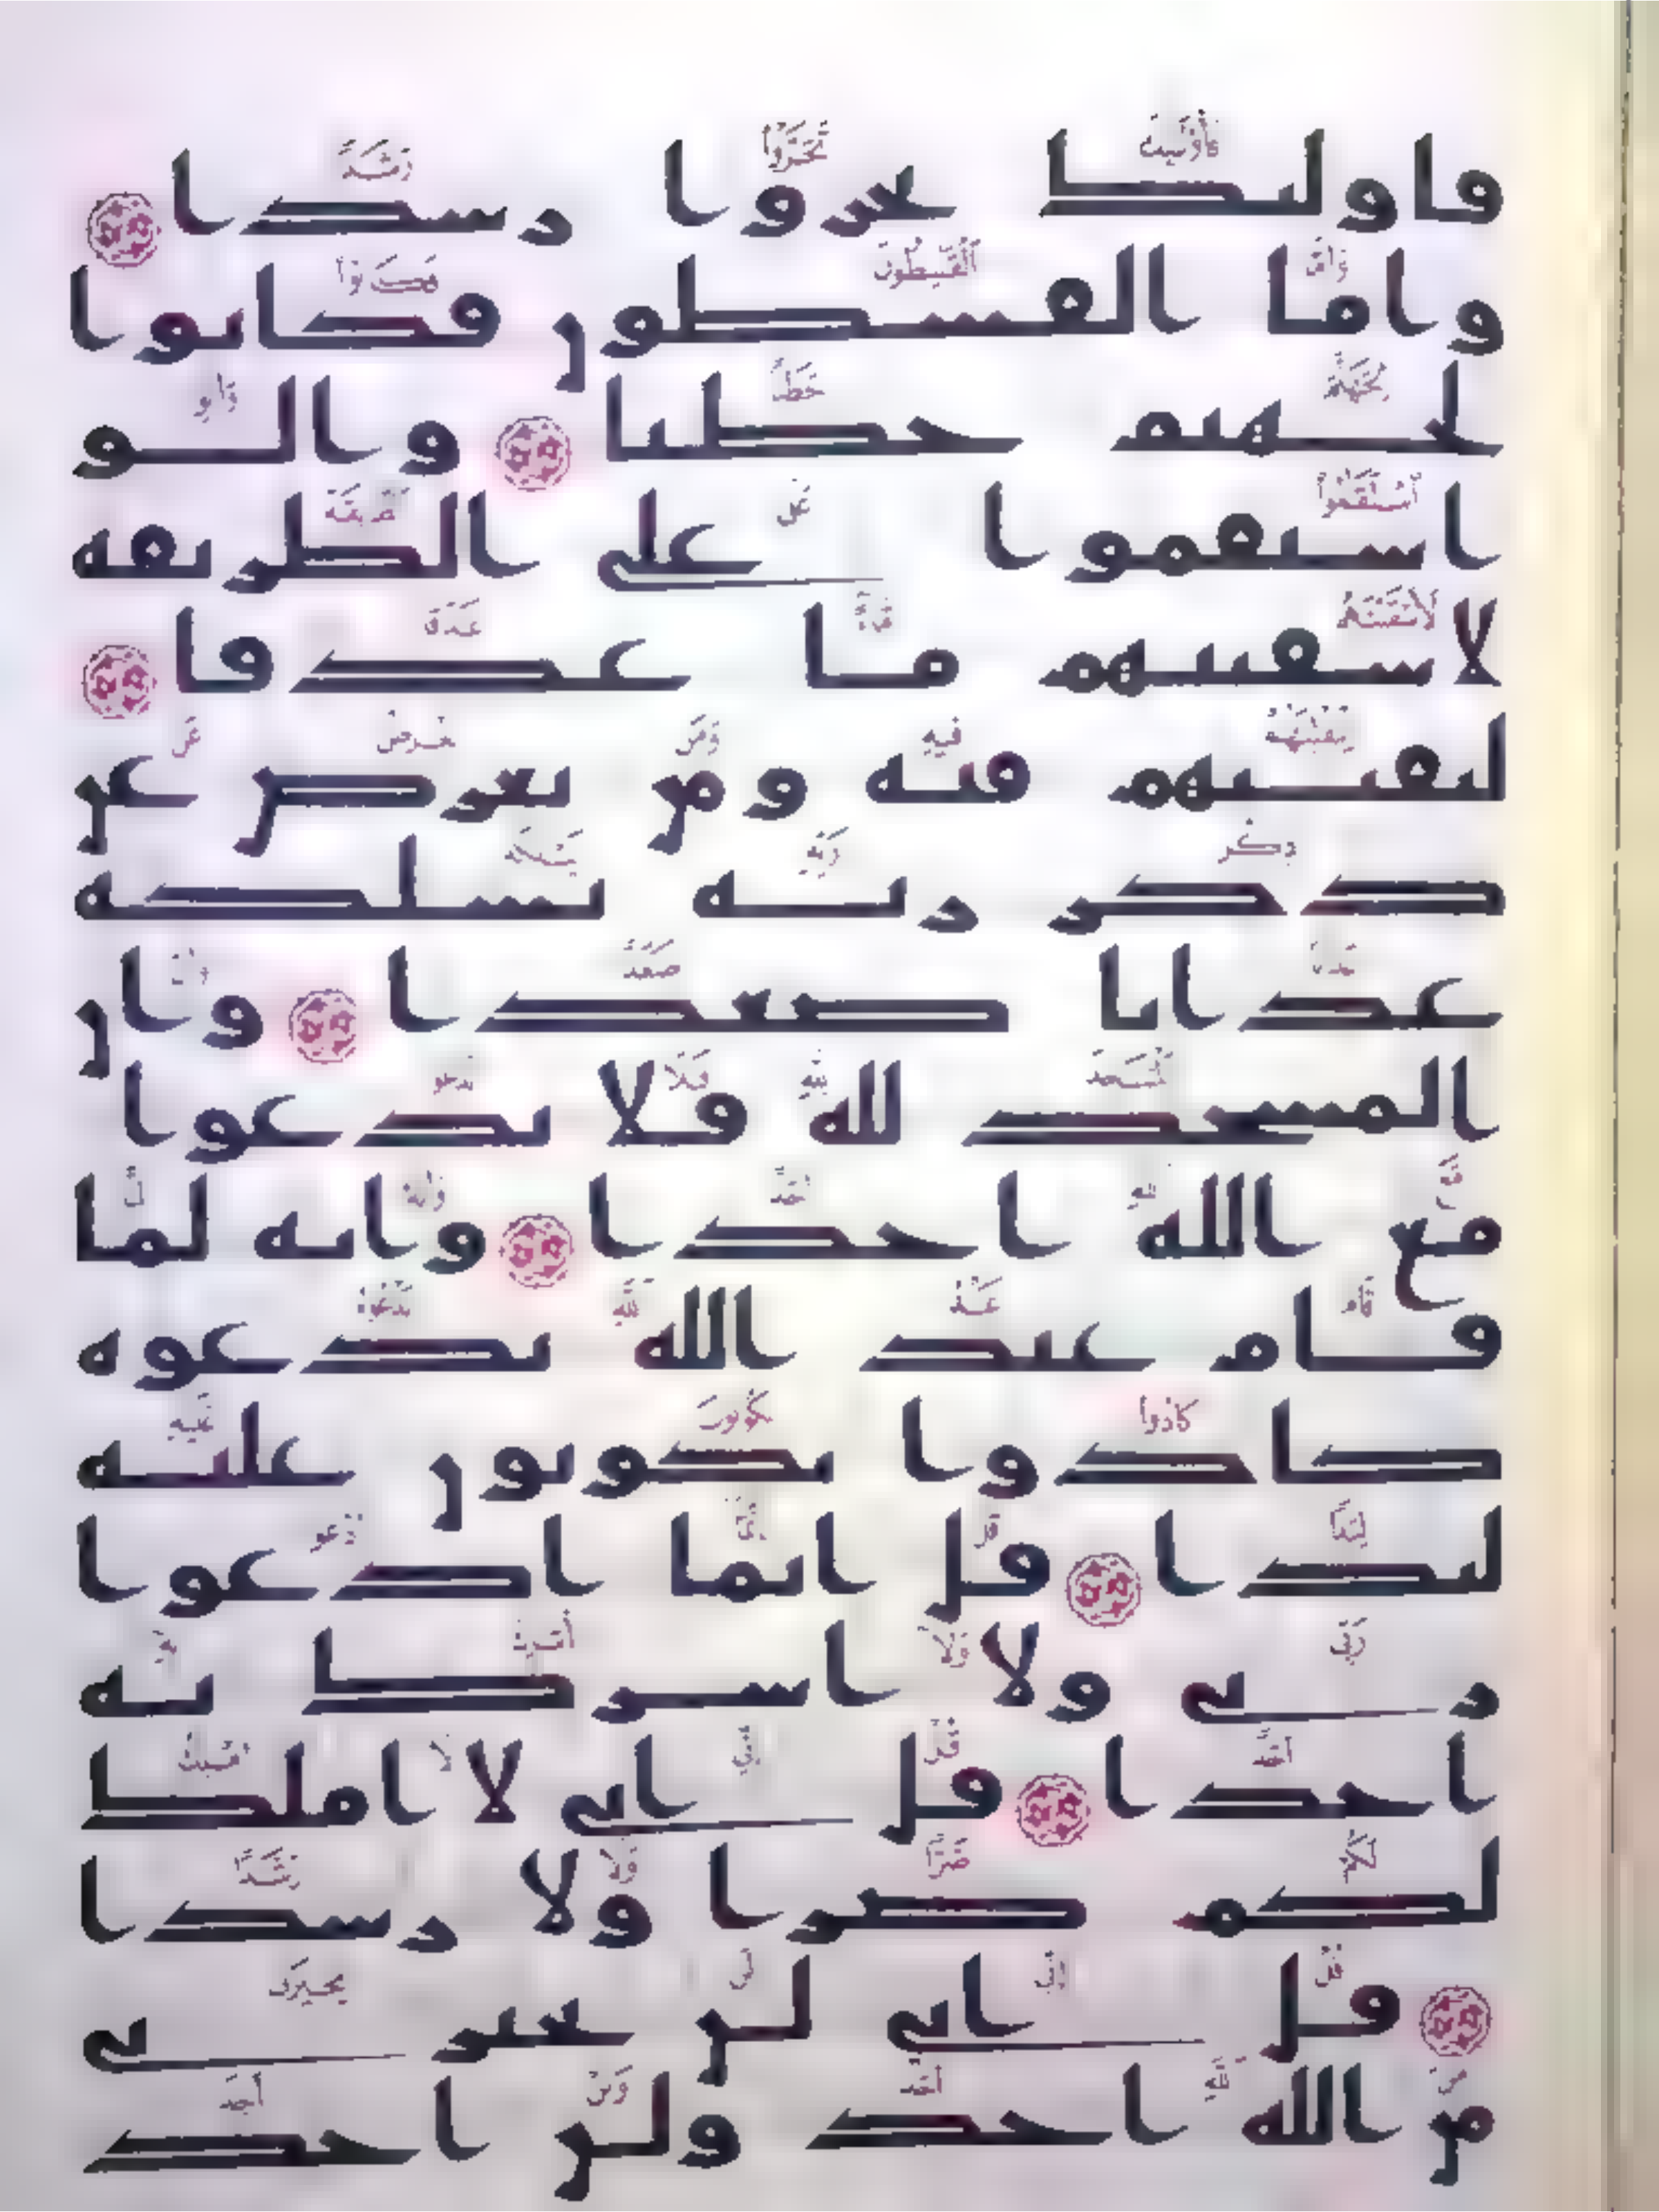 فاولىك تحروا رشدا
واما القسطون فكانوا
لجهنم حطبا والو
استقموا على الطريقه
لاسقينهم ما غدقا
لنفتنهم فيه ومن يعرض عن
ذكر ربه يسلكه
عذابا صعدا وان
المسجد لله فلا تدعوا
مع الله احدا وانه لما
قام عبد الله يدعوه
كادوا يكونون عليه
لبدا قل انما ادعوا
ربى ولا اشرك به
احدا قل انى لا املك
لكم ضرا ولا رشدا
قل انى لن يجيرنى
من الله احد ولن اجد